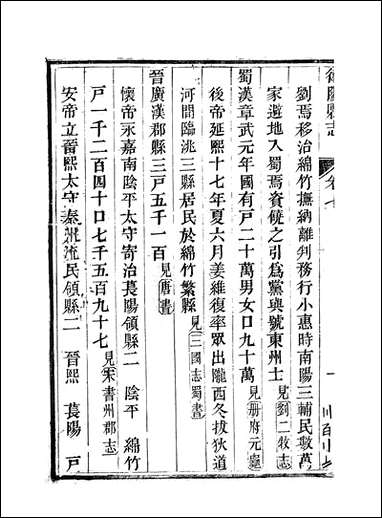 劉焉移治綿竹撫納離判務行小惠時南陽三輔民數萬
家避地入蜀焉資饒之引爲黨與號東州士見劉二牧志
蜀漢章武元年國有戶二十萬男女口九十萬見册府元龜
後帝延熙十七年夏六月姜維復率眾出隴西冬拔狄道
河間臨洮三縣居民於綿竹繁縣見三國志蜀書
晉廣漢郡縣三戶五千一百見晉書
懷帝永嘉南陰平太守寄治萇陽領縣二 陰平 綿竹
戶一千二百四十口七千五百九十七見宋書州郡志
安帝立晉熙太守秦州流民領縣二 晉熙 萇陽 戶